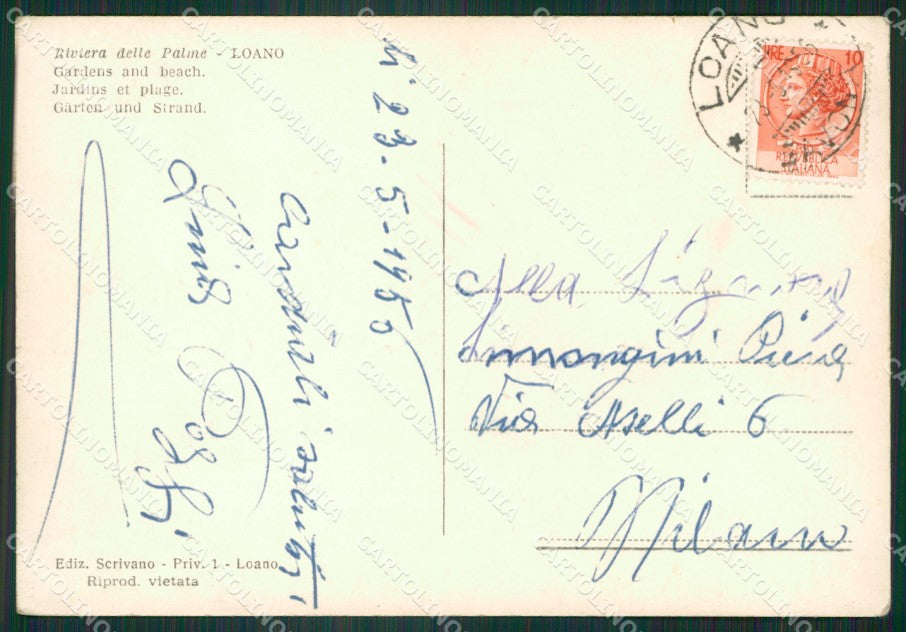 Riviera delle Palme - LOANO
Gardens and beach.
Jardins et plage.
Gärten und Strand.
li 23-5-1955
Cordiali saluti
LOANO
LIRE 10
REPUBBLICA
ITALIANA
Alla
Piera
Via Aselli 6
Milano
Ediz. Scrivano - Priv. 1 - Loano
Riprod. vietata
CARTOLINOMANIA